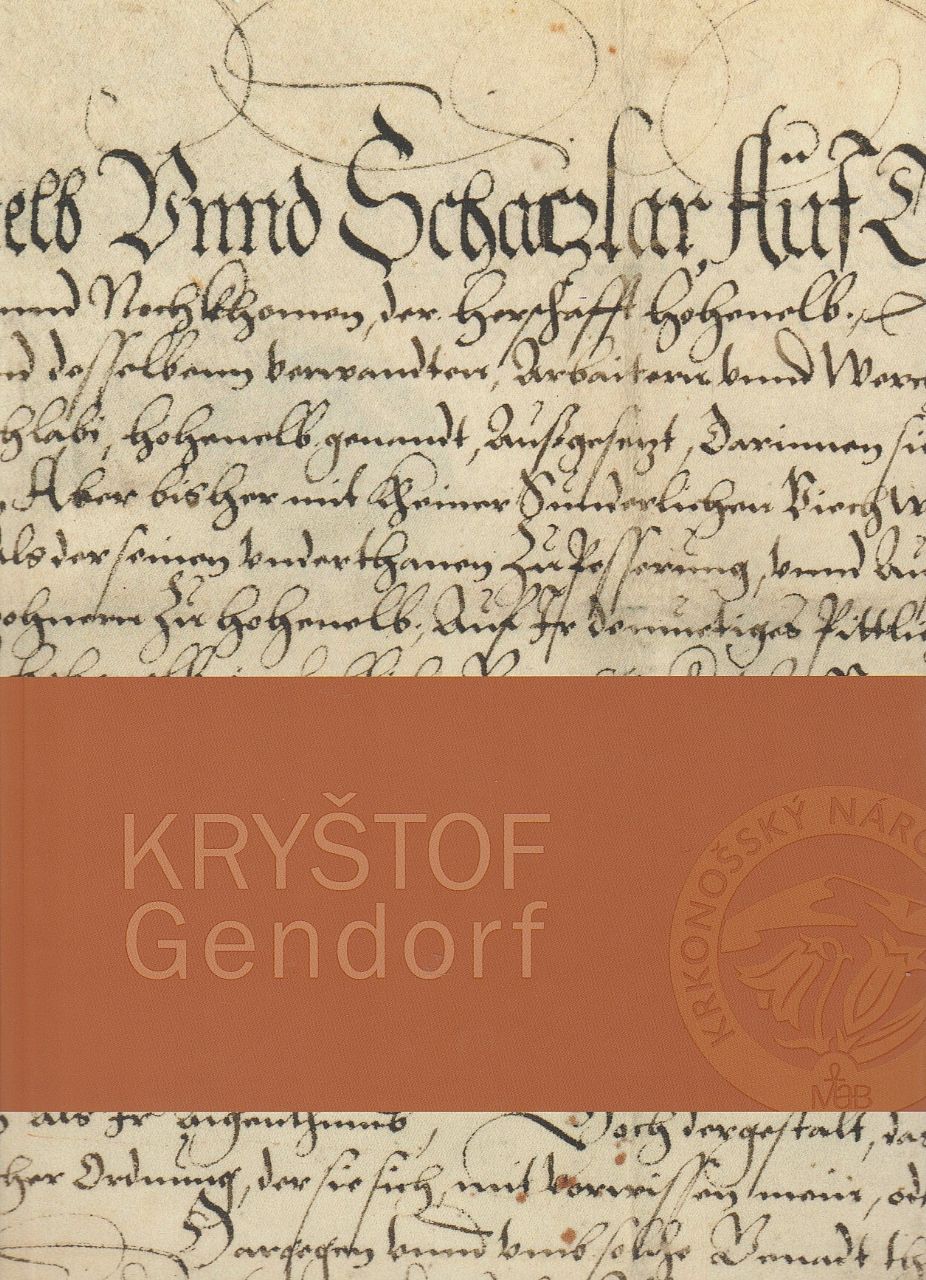 elb Vnnd Schaczlar, Auf
nnd Nochkhomen, der Herschafft Hohenelb,
desselbenn verwandten, Arbaitern vnnd Werc
chlabi, hohenelb genandt, Außgesetzt, Darinnen sie
Aber bisher mit kheiner Sunderlichen Viech w
als der seinen vnderthanen Zu Pesserung, vnnd Au
wohnern Zu hohenelb, Auf Ir demuetiges Pittli
KRYŠTOF
Gendorf
KRKONOŠSKÝ NÁRO
als Ir aigenthumb, Doch dergestalt, das
cher Ordnung, der sie sich, mit vorwissen mein, ode
Dargegen vnnd vmb solche Benadt